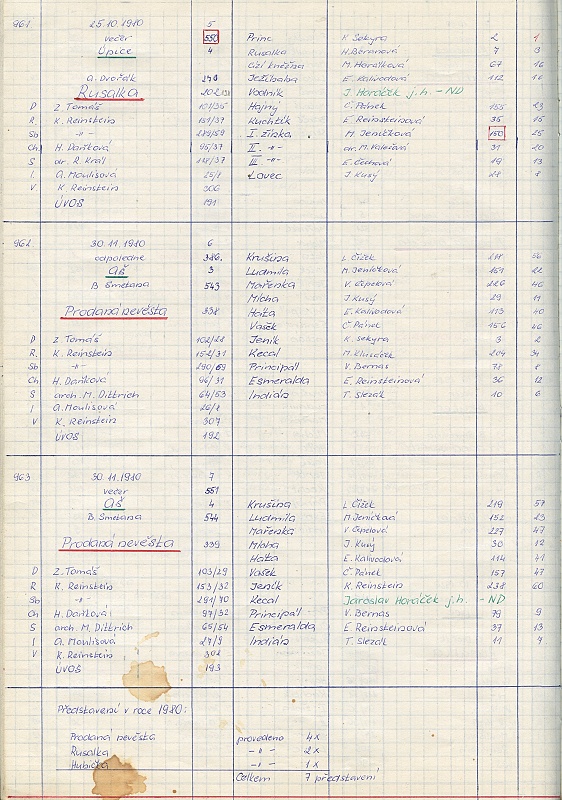 961 25.10.1980 5
večer 550 Princ K. Sekyra 2 1
Úpice 4 Rusalka H. Beranová 7 3
Cizí kněžna M. Horálková 67 16
A. Dvořák Ježibaba E. Kalivodová 112 16
Rusalka Vodník J. Horáček j.h. - ND
D Z. Tomáš 101/35 Hajný Č. Pánek 155 23
R K. Reinstein 151/37 Kuchtík E. Reinsteinová 35 15
Sb -"- 289/59 I. žínka M. Jeničková 150 25
Ch H. Daňková 95/37 II. -"- dr. M. Valešová 31 20
S dr. R. Král III. -"- E. Čechová 19 13
I A. Moulisová 25/8 Lovec J. Kusý 28 8
V K. Reinstein 306
ÚVOS 191
962 30.11.1980 6
odpoledne 386. Krušina L. Čížek 218 56
Aš 3 Ludmila M. Jeničková 151 22
B. Smetana 543 Mařenka V. Čepelová 226 46
Mícha J. Kusý 29 11
Prodaná nevěsta 338 Háta E. Kalivodová 113 40
Vašek Č. Pánek 156 46
D Z. Tomáš 102/28 Jeník K. Sekyra 3 2
R. K. Reinstein 152/31 Kecal M. Klusáček 204 34
Sb -"- 290/69 Principál V. Bernas 78 8
Ch H. Daňková 96/31 Esmeralda E. Reinsteinová 36 12
S arch. M. Dittrich 64/53 Indián T. Slezák 10 6
I A. Moulisová 26/8
V K. Reinstein 307
ÚVOS 192
963 30.11.1980 7
večer 551
Aš 4 Krušina L. Čížek 219 57
B. Smetana 544 Ludmila M. Jeničková 152 23
Mařenka V. Čepelová 227 47
Prodaná nevěsta 339 Mícha J. Kusý 30 12
Háta E. Kalivodová 114 41
D Z. Tomáš 103/29 Vašek Č. Pánek 157 47
R K. Reinstein 153/32 Jeník K. Reinstein 238 60
Sb -"- 291/70 Kecal Jaroslav Horáček j.h. - ND
Ch H. Daňková 97/32 Principál V. Bernas 79 9
S arch. M. Dittrich 65/54 Esmeralda E. Reinsteinová 37 13
I A. Moulisová 27/9 Indián T. Slezák 11 7
V K. Reinstein
ÚVOS 193
Představení v roce 1980:
Prodaná nevěsta provedeno 4x
Rusalka -"- 2x
Hubička -"- 1x
Celkem 7 představení